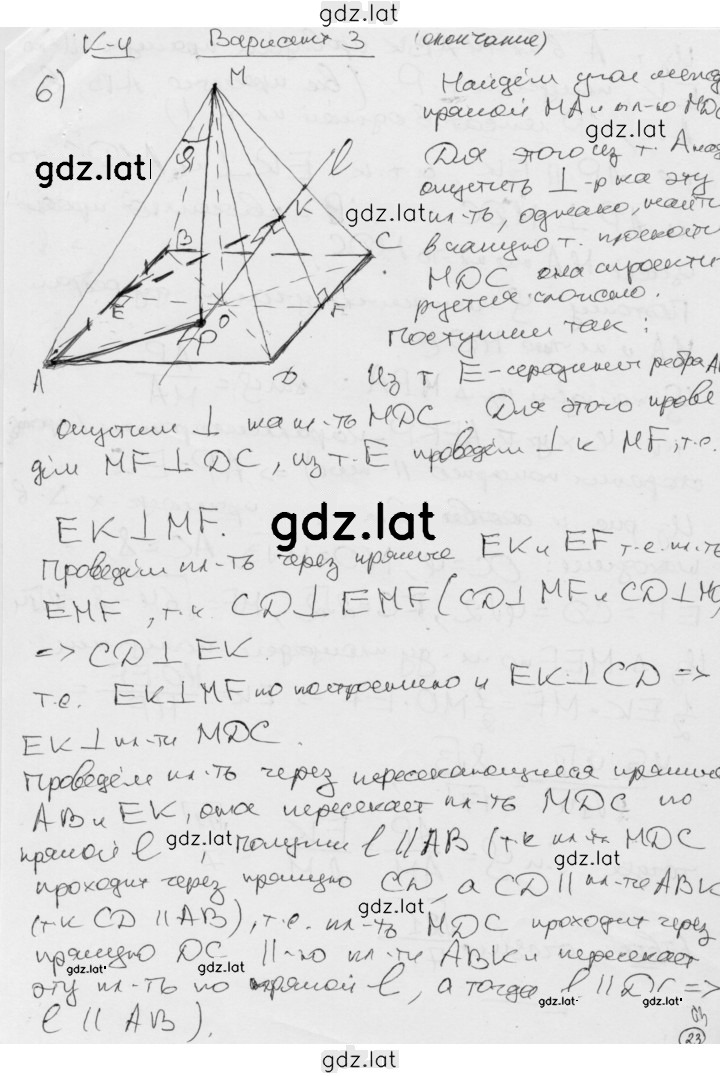 gdz.lat
К-4 Вариант 3 (окончание)
6)
M
Найдём угол между
прямой MA и пл-ю MDC
gdz.lat
φ
gdz.lat
Для этого из т. A надо
опустить ⊥-р на эту
l
gdz.lat
пл-ть, однако, найти
K
B
C
в какую т. плоскости
MDC она спроекти
руется сложно.
E
F
O
P
Поступим так:
A
D
Из т. E-середины ребра AB
опустим ⊥ на пл-ть MDC. Для этого прове
дём MF ⊥ DC, из т. E проведём ⊥ к MF, т.е.
EK ⊥ MF.
gdz.lat
Проведём пл-ть через прямые EK и EF т.е. пл-ть
EMF, т.к CD ⊥ EMF (CD ⊥ MF и CD ⊥ MO)
=> CD ⊥ EK.
т.е. EK ⊥ MF по построению и EK ⊥ CD =>
EK ⊥ пл-ти MDC.
Проведём пл-ть через пересекающиеся прямые
AB и EK, она пересекает пл-ть MDC по
прямой l, получим l || AB (т к пл-ть MDC
gdz.lat
проходит через прямую CD, а CD || пл-ти ABK
gdz.lat
(т к CD || AB), т.е. пл-ть MDC проходит через
прямую DC ||-но пл-ти ABK и пересекает
gdz.lat
gdz.lat
эту пл-ть по прямой l, а тогда l || DC =>
gdz.lat
gdz.lat
l || AB).
23
gdz.lat